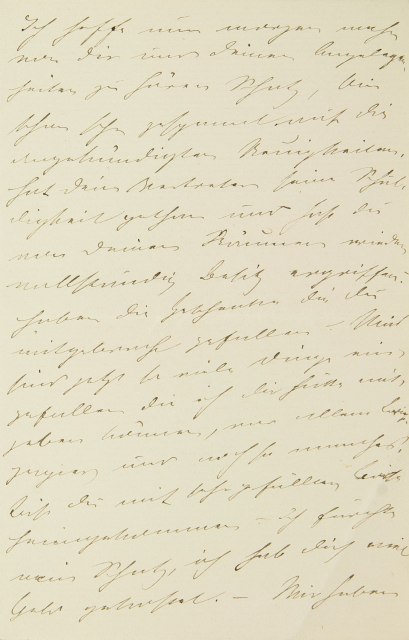 Ich hoffe nun morgen mehr
von dir und deinen Angelegen
heiten zu hören Schatz, bin
schon sehr gespannt auf die
angekündigten Neuigkeiten.
hat dein Vertreter seine Schul-
digkeit gethan und hast du
von deinen Räumen wieder
vollständig Besitz ergriffen.
haben die Geschenke die du
mitgebracht gefallen – Mir
sind jetzt so viele Dinge ein-
gefallen die ich dir hätte mit
geben können, vor allem
und noch so manches.
du mit
heimgekommen – ich fürchte
mein Schatz, ich hab dich um
Geld – Wir haben